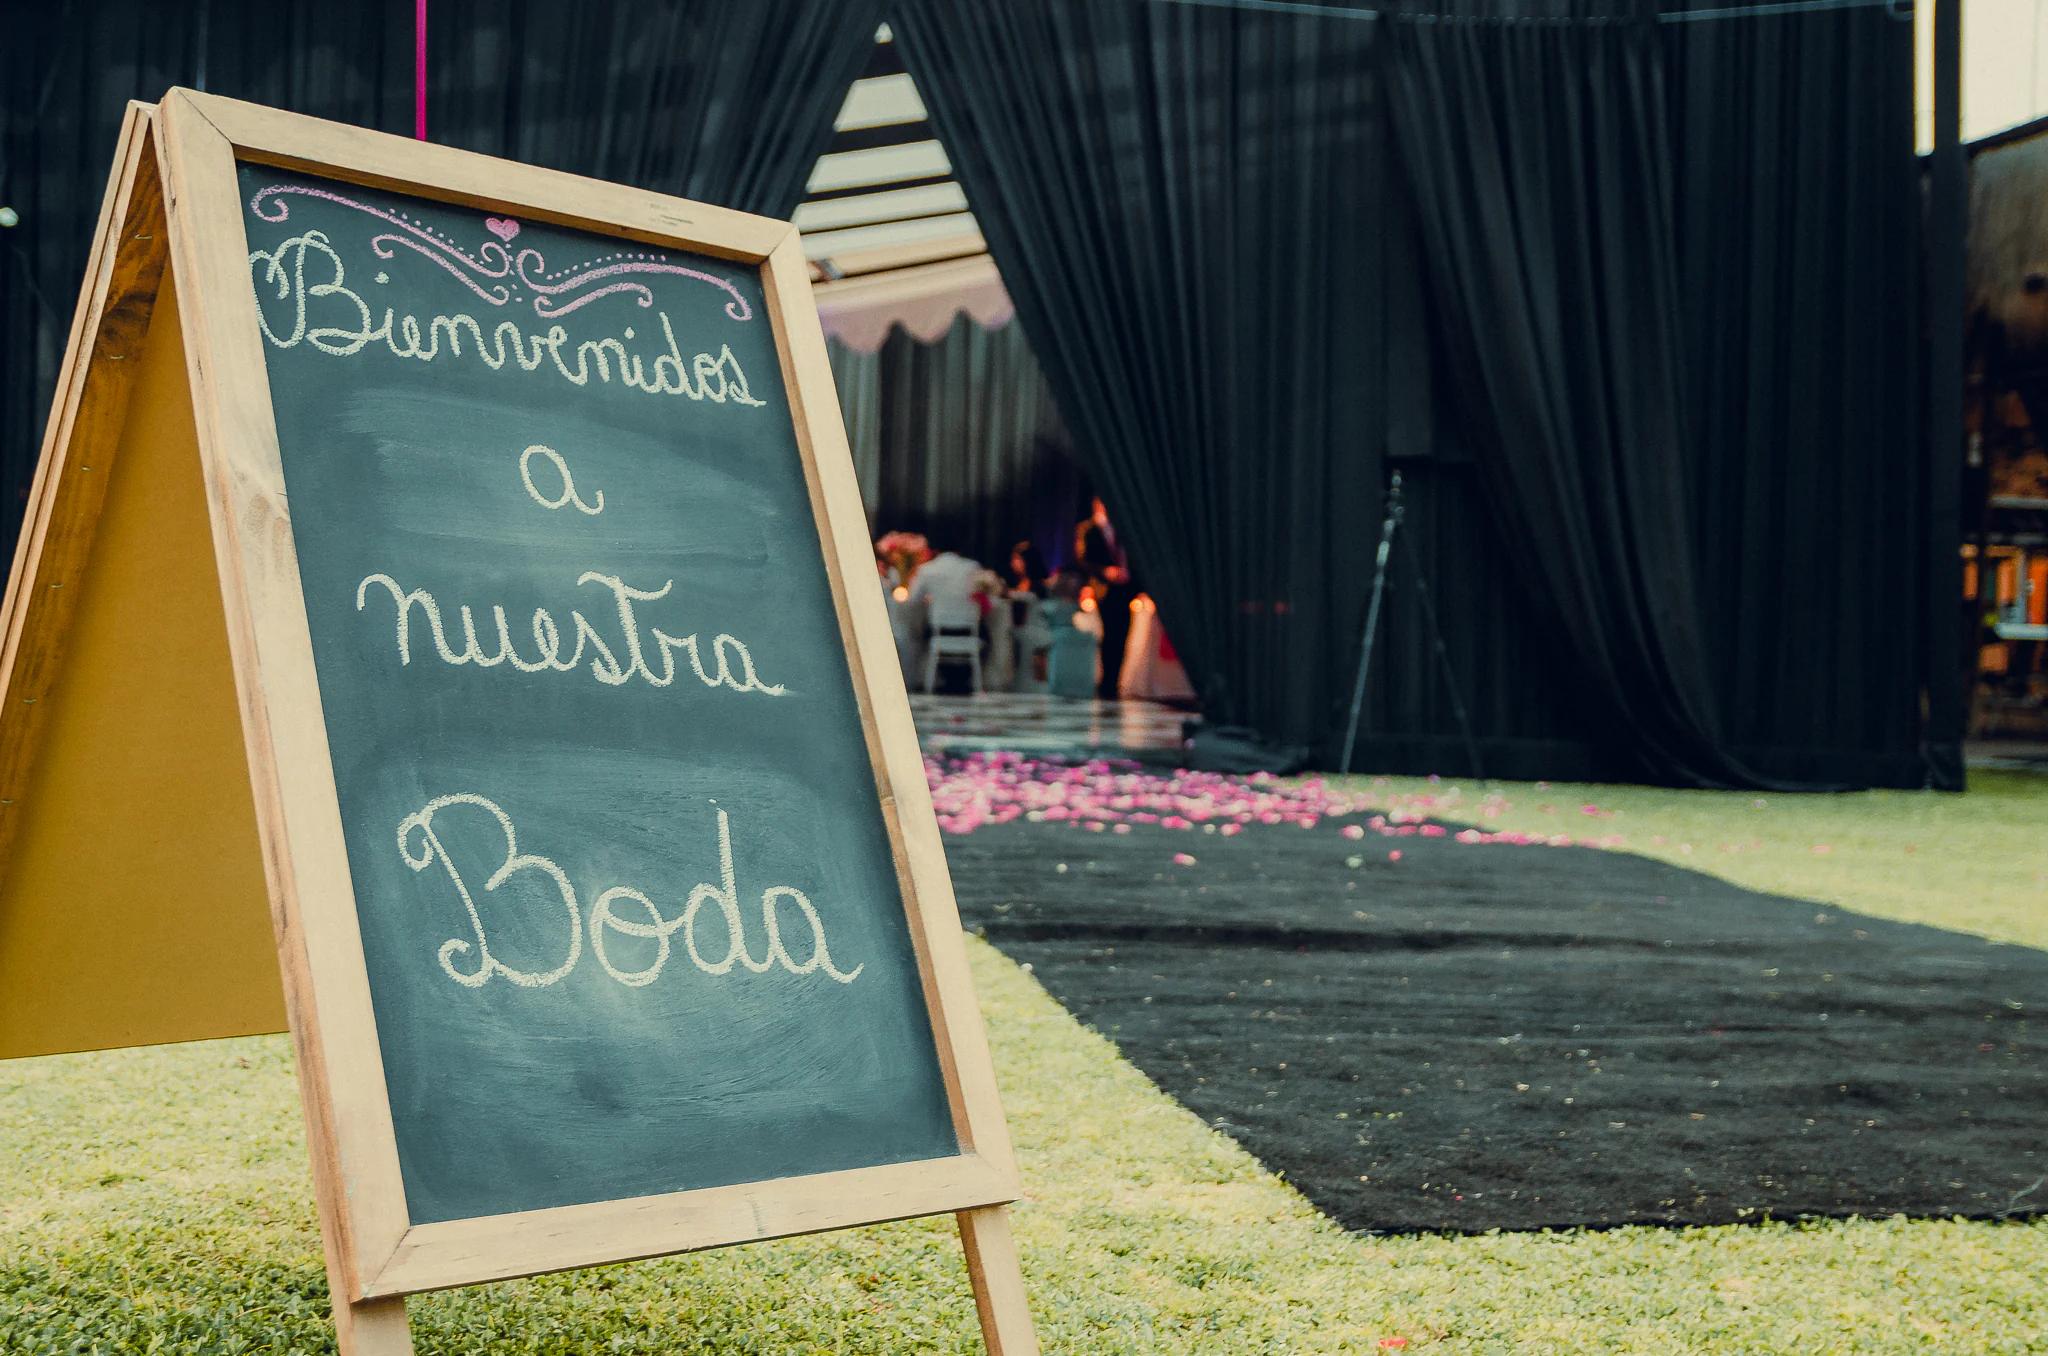 Bienvenidos
a
nuestra
Boda